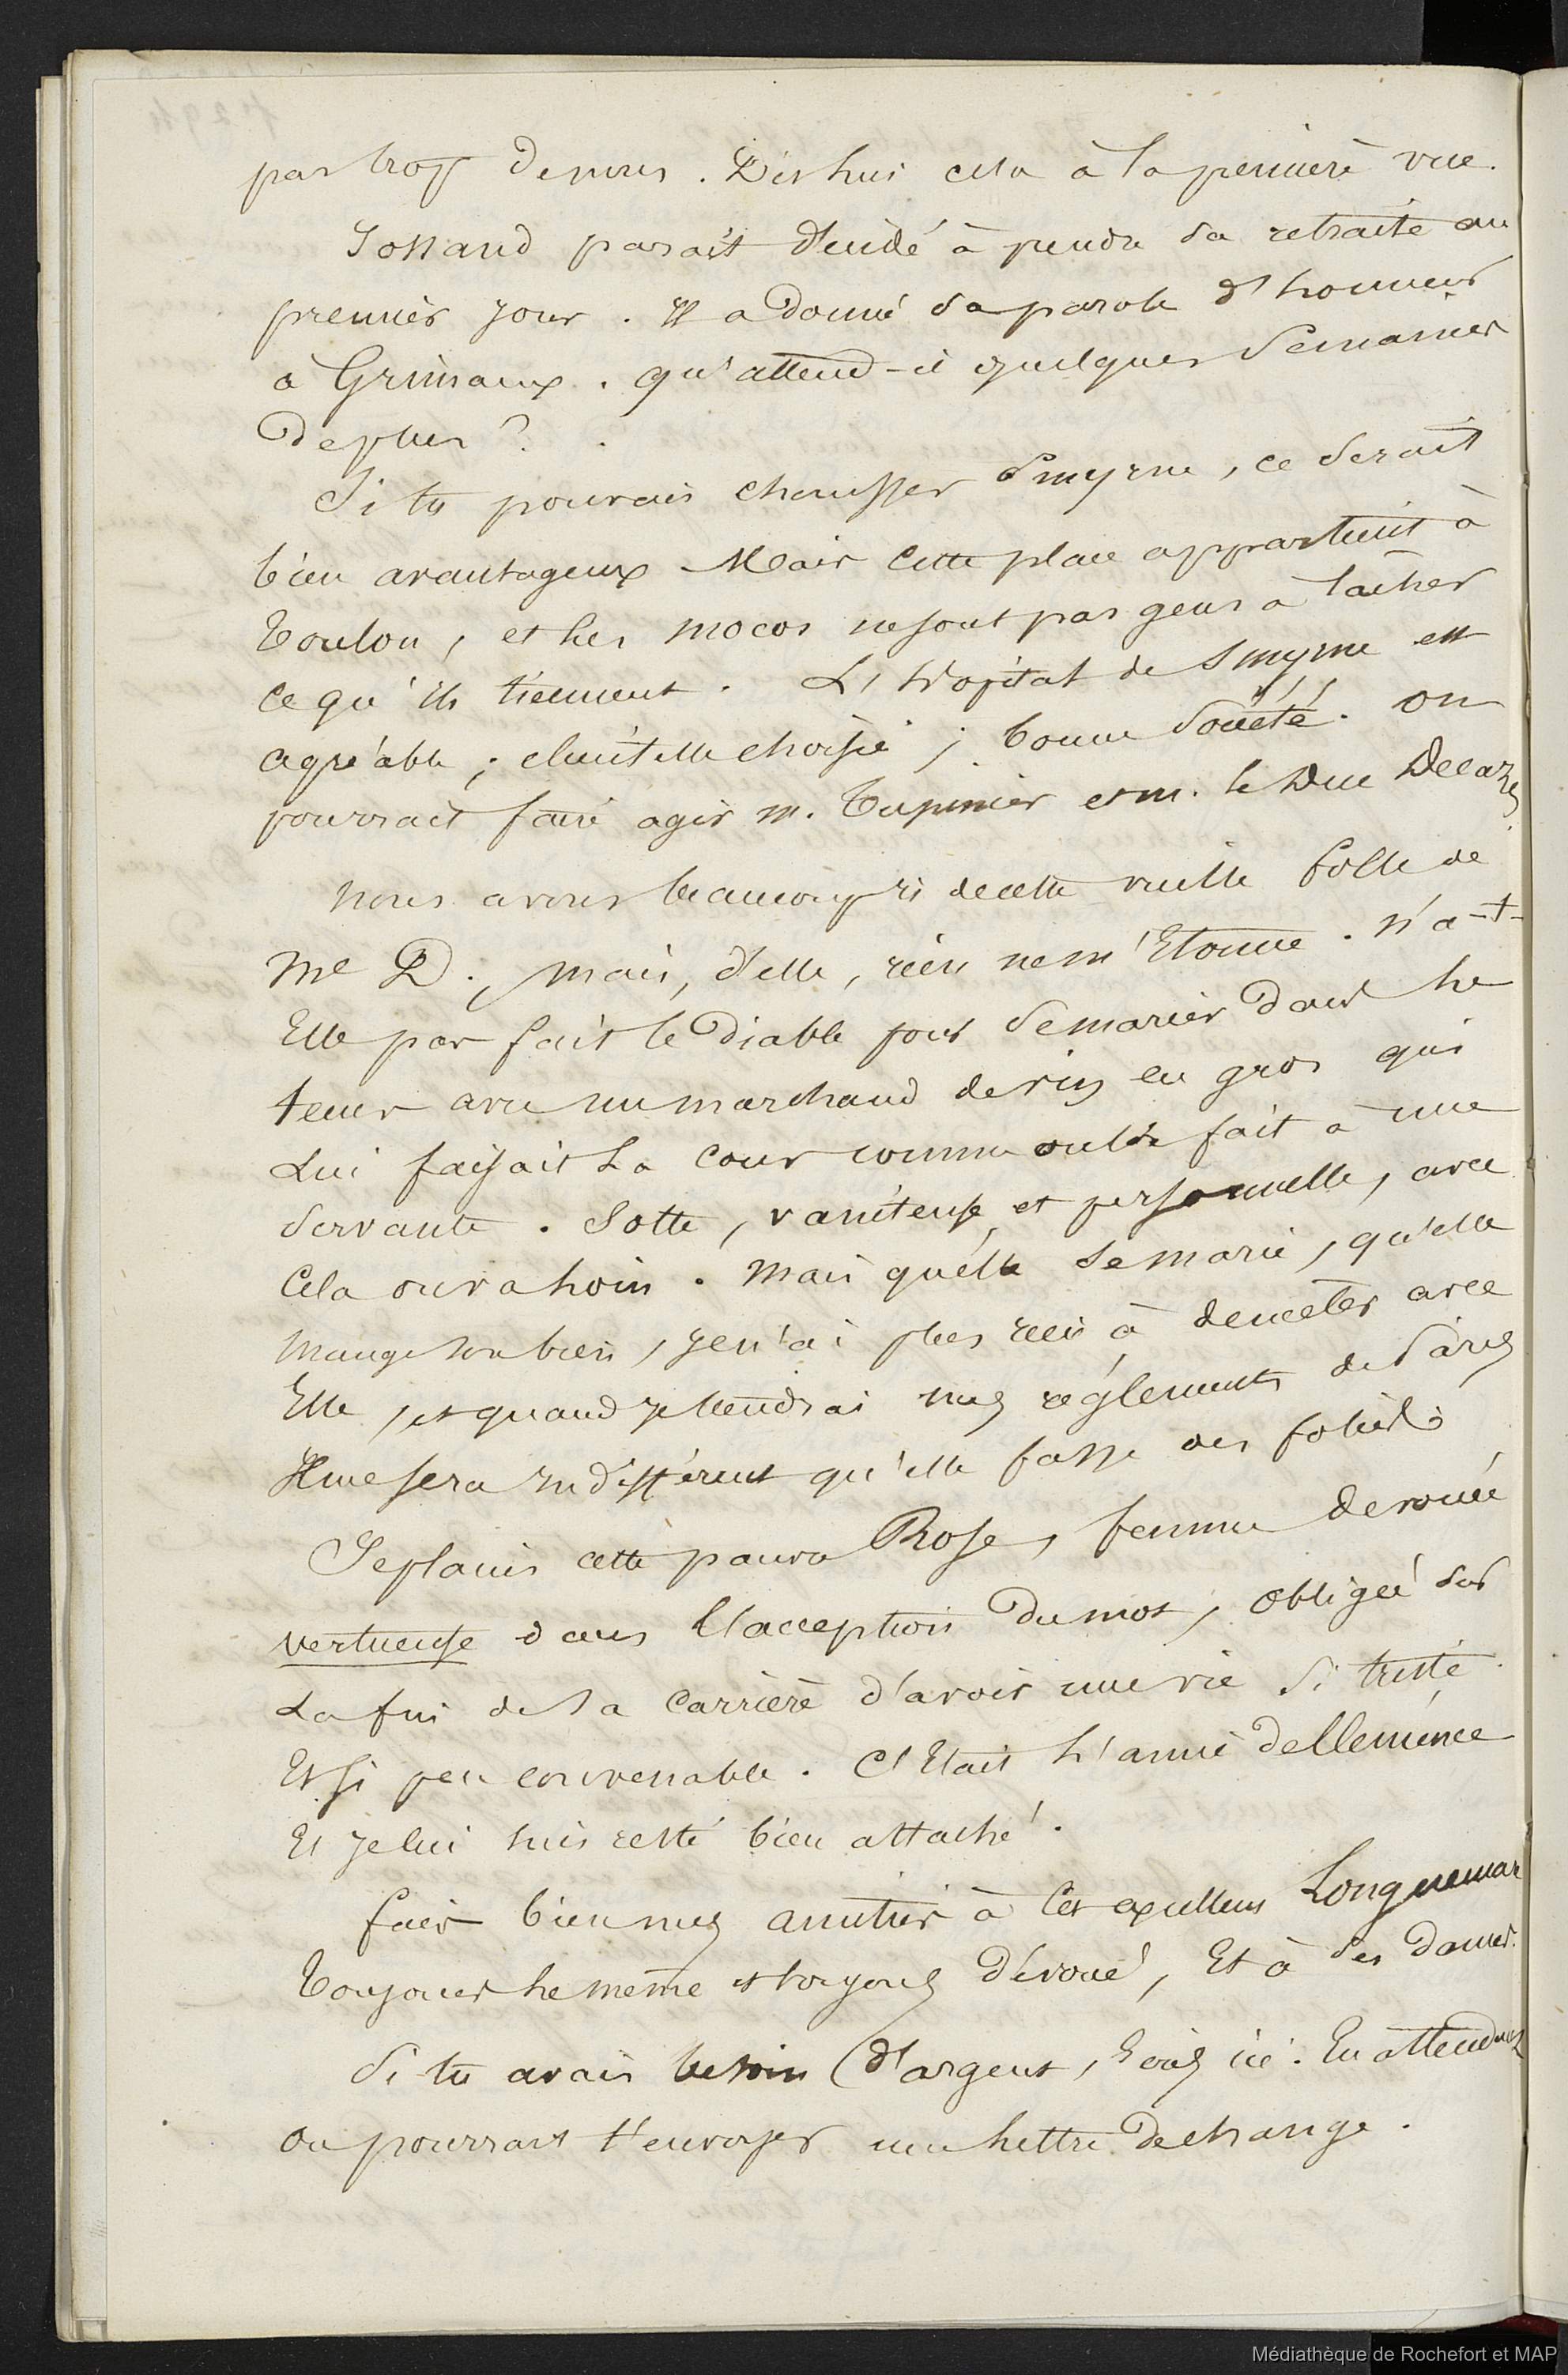 pas trop de nous. Dis lui cela à la première vue.
Jossand paraît décidé à prendre sa retraite au
premier jour. Il a donné sa parole d'honneur
à Grimaux. qu'attend-il quelques semaines
de plus ?
Si tu pouvais chausser Smyrne, ce serait
bien avantageux Mais cette place appartient à
Toulon, et les mocos ne sont pas gens à lâcher
ce qu'ils tiennent. L'hôpital de Smyrne est
agréable ; clientelle choisie ; bonne société. on
pourrait faire agir M. Tupinier et M. le Duc Decazes
Nous avons beaucoup ri de cette vieille folle de
Me D. ; mais, d'elle, rien ne m'Etonne. N'a-t-
Elle pas fait le Diable pour se marier dans le
tems avec un marchand de vin en gros qui
Lui faisait la cour comme on la fait à une
servante. Sotte, vaniteuse et personnelle, avec
Cela on va loin. Mais qu'elle se marie, qu'elle
mange son bien, je n'ai plus rien à demeler avec
Elle, et quand je tiendrai mes réglements de Paris
Il me sera indifférent qu'elle fasse des folies.
Je plains cette pauvre Rose, femme devouée
vertueuse dans l'acception du mot, obligée sur
La fin de sa carrière d'avoir une vie si triste
Et si peu convenable. C'Etait l'amie de Clémence
Et je lui suis resté bien attaché.
fais bien mes amitiés à cet excellent Longuemar
Toujours le même et toujours dévoué, Et à ses dames.
Si tu avais besoin d'argent, Ecris ici. En attendant
on pourrait t'envoyer une lettre de change.
Médiathèque de Rochefort et MAP